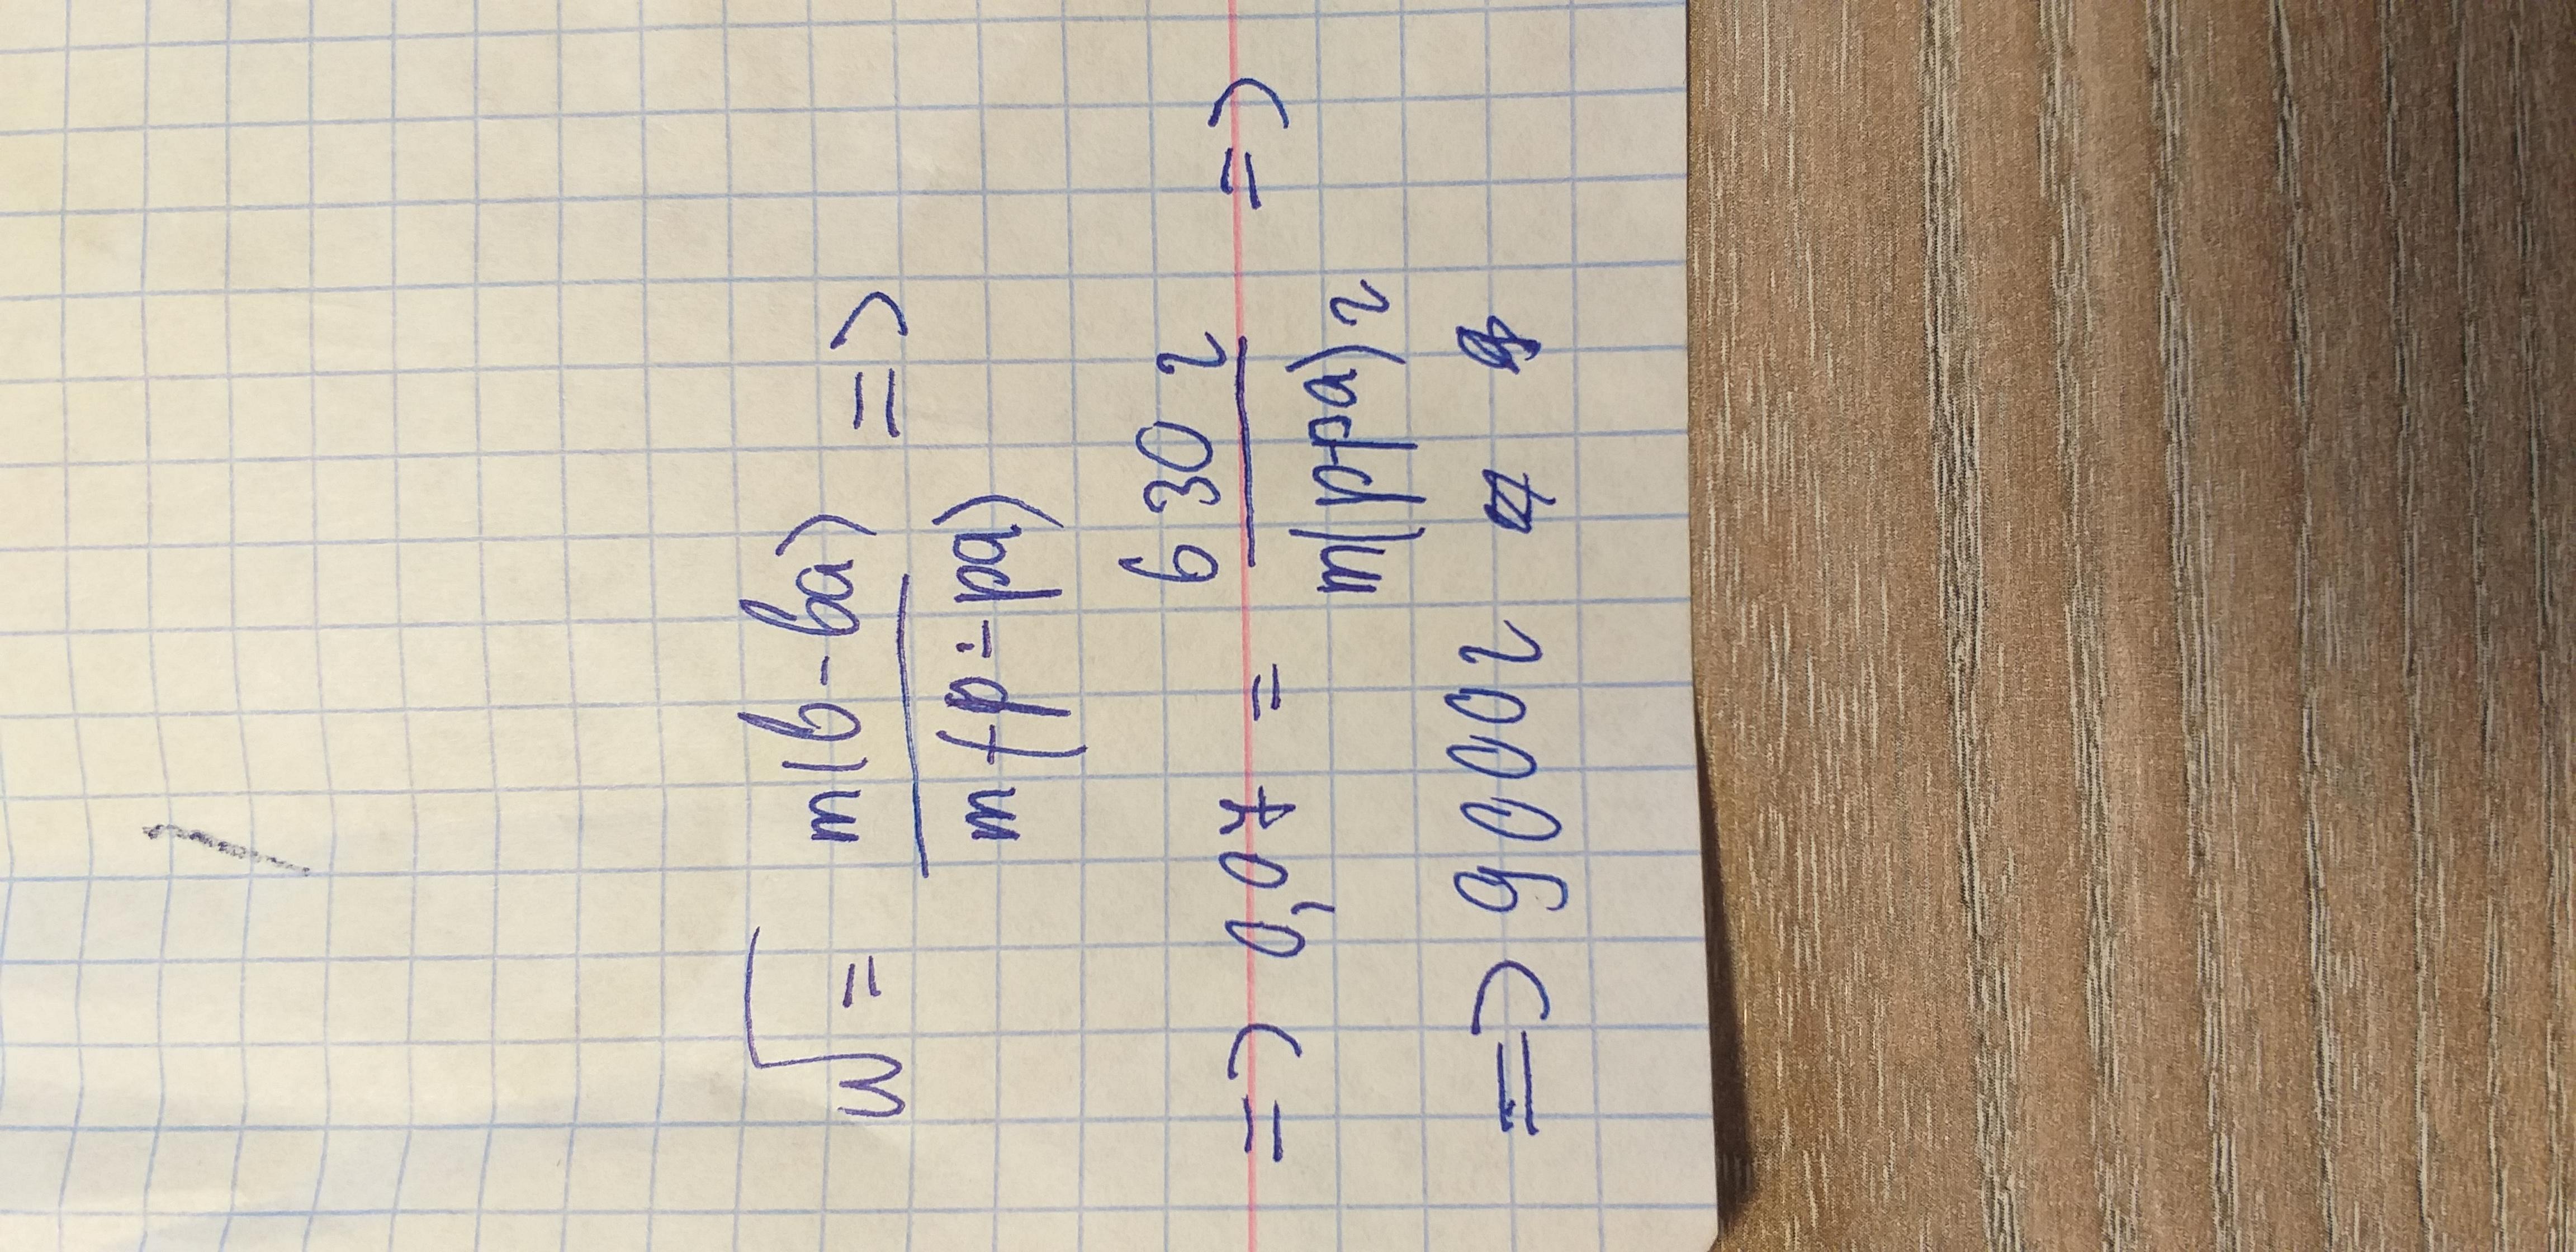 W = m(в-ва) =>
m(р-ра)
=> 0,07 = 630 г =>
m(рра) г
=> 9000 г